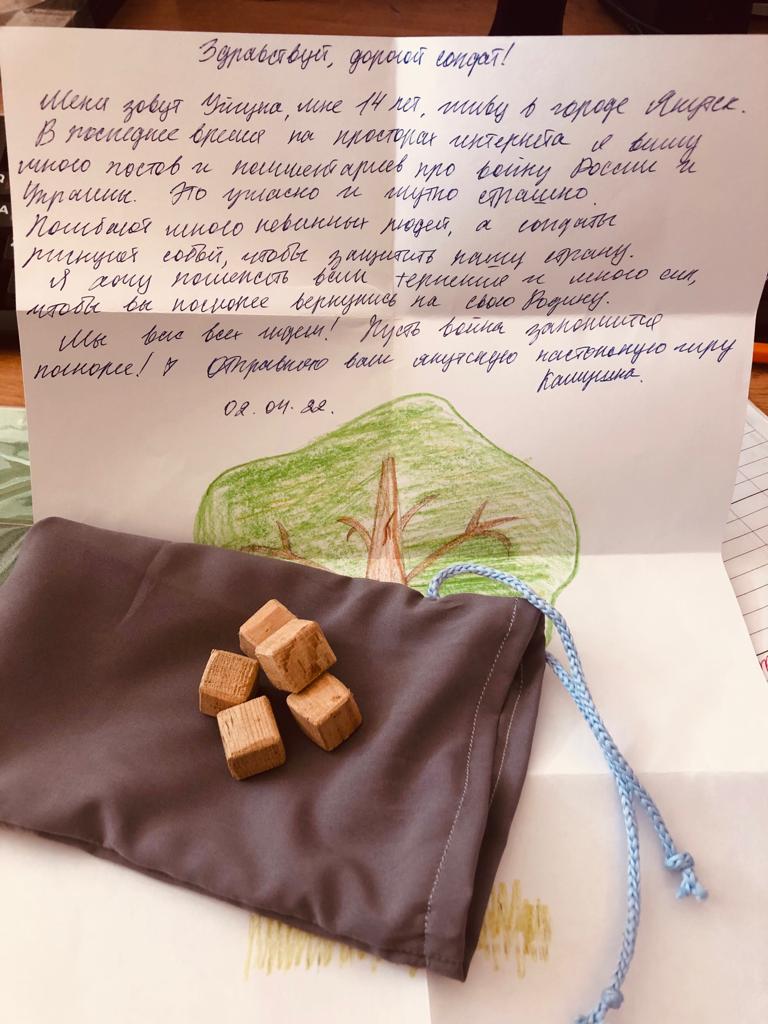 Здравствуй, дорогой солдат!
Меня зовут Уйгуна, мне 14 лет, живу в городе Якутск.
В последнее время на просторах интернета я вижу
много постов и комментариев про войну России и
Украины. Это ужасно и жутко страшно.
Погибают много невинных людей, а солдаты
рискуют собой, чтобы защитить нашу страну.
Я хочу пожелать вам терпение и много сил,
чтобы вы поскорее вернулись на свою Родину.
Мы вас всех ждем! Пусть война закончится
поскорее! Отправляю вам якутскую настольную игру
02.04.22.